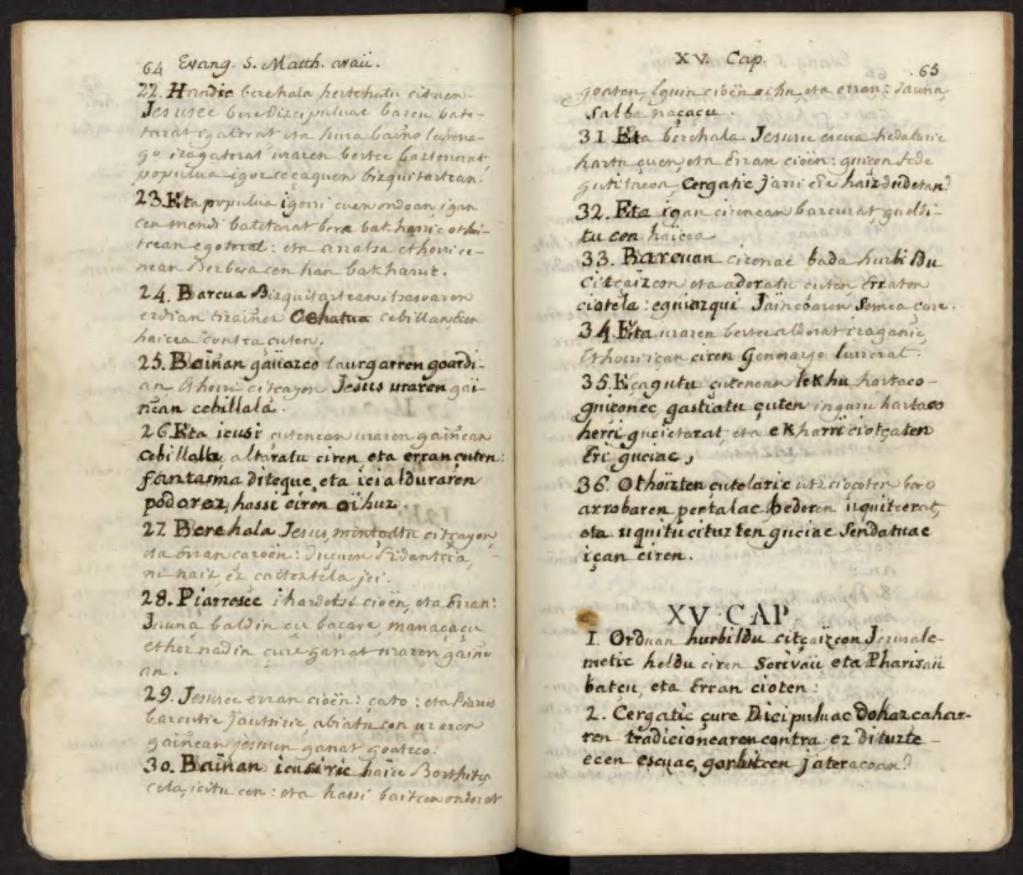 64 Evang. S. Matth. araü.
22. Handic berehala hertchatu cituen
Jesusec bere Dicipuluac barcu bate-
tarat igaterat eta hura baino lehena-
go iragaterat uraren bertce bazterrerat,
populua igortcen çaquen bizquitartean.
23. Eta populua igorri cuen ondoan, igan
cen mendi batetarat bera bakharric othi-
tcean egoterat: eta arratsa ethorri ce-
nean Berbera cen han bakharric.
24. Barcua Bizquitartean itsasoaren
erdian tirainez cebillan Ecen
haicea contra çuten.
25. Bainan gauazco laurgarren goardi-
an ethorri citçayen Jesus uraren gaï-
ñean cebillala.
26. Eta icusi cutenean uraren gaiñean
cebillalla, altaratu ciren eta erran çuten:
fantasma diteque, eta ici alduraren
podorez, hassi ciren oihuz.
27. Berehala Jesus mintçatu citçayen
eta Erran caroën: Duçuen fidantcia,
ni naiz, ez çaiteztela ici.
28. Piarresec ihardetsi cioën, eta Erran:
Jauna, baldin çu baçare, manaçaçu
ethor nadin çure ganat uraren gaine
an.
29. Jesusec erran cioën: çato: eta Piarres
barcutic jautsiric, abiatu cen uraren
gaiñean Jesusen ganat goateco.
30. Bainan icusiric haice Borthitz
cela, icitu cen: eta hassi baitcen ondorat
XV. Cap. 65
goaten, Eguin cioën oihu, eta erran: Jauna,
Salba naçaçu.
31 Eta berehala Jesusec escua hedaturic
hartu çuen, eta Erran cioën: guiçon fede
guti tacoa, Cergatic Jarri ere haiz dudetan?
32. Eta igan cirenean barcurat, gueldi-
tu cen haicea.
33. Barcuan cirenac bada hurbildu
citçaizcon eta adoratu cuten Erraten
ciotela: eguiazqui Jaincoaren Semea care.
34. Eta uraren bertce alderat iraganic,
Ethorri içan ciren Genorargo lurrerat.
35. Eçagutu çutenean lekhu hartaco-
guiçonec, gastiatu çuten inguru hartaco
herri gucietarat, eta ekharri ciotçaten
Eri guciac,
36. Othoizten çutelaric utz ciocoten bere
arrobaren pertalac bederen uquitcerat,
eta uquitu cituzten guciac Sendatuac
içan ciren.
XV. CAP.
1. Orduan hurbildu citçaizcon Jerusale-
metic heldu ciren Scrivaü eta Pharisaü
batçu, eta Erran cioten:
2. Cergatic çure Dicipuluac Dohazcahar-
ren tradicionearen contra ez dituzte-
ecen escuac, garbitcen jateracoan?